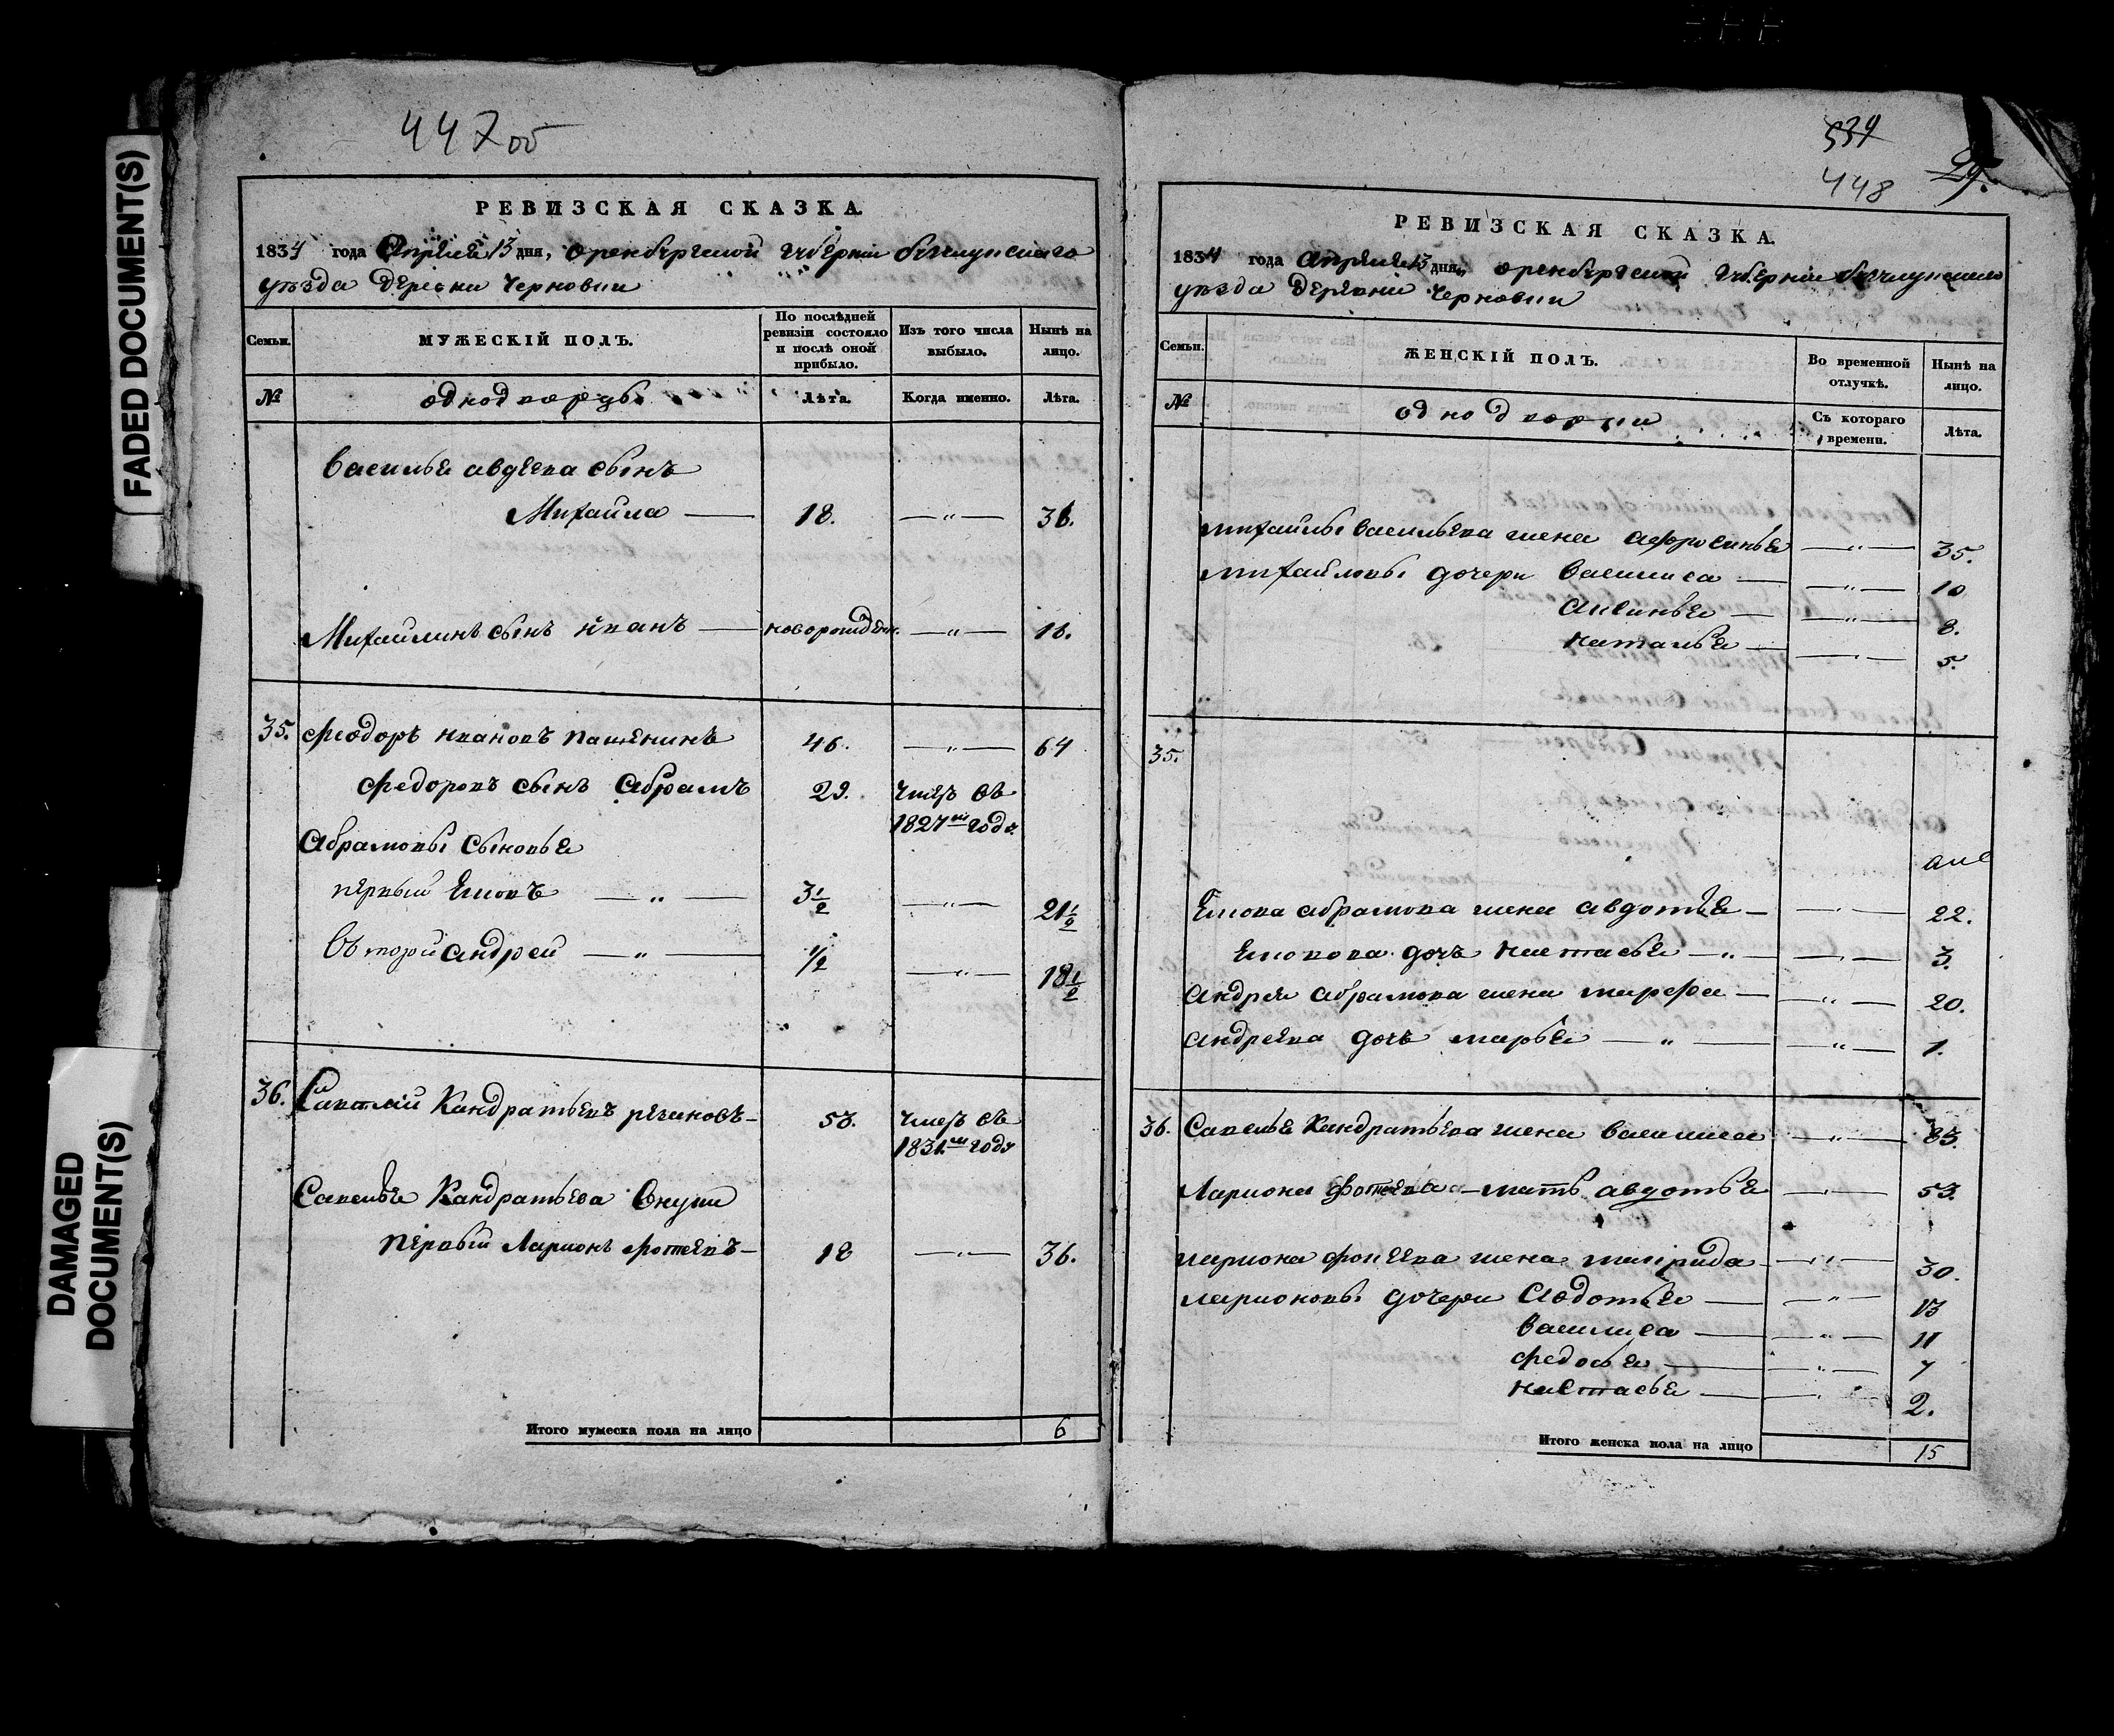 447 об
РЕВИЗСКАЯ СКАЗКА.
1834 года Апреля 13 дня, оренбургской губернии бугульминскаго
уезда деревни Черновки
Семьи.
МУЖЕСКІЙ ПОЛЪ.
По последней ревизіи состояло и послѣ оной прибыло.
Изъ того числа выбыло.
Нынѣ на лицо.
№
однодворцы
Лѣта.
Когда именно.
Лѣта.
Василья авдеева сынъ
Михайла 18. 36.
Михайлинъ сынъ Иванъ новорожден. 16.
35. Феодоръ Ивановъ 46. 64
Федоровъ сынъ Абрамъ 29. умер въ
1827м году
Абрамовы сыновья
первый Емовъ 3 1/2 21 1/2
Второй андрей 1/2 18 1/2
36. Кандратьевъ 53. умер въ
1831м году
Савелья Кандратьева внуки
первый Ларионъ фотеевъ 18 36.
Итого мужеска пола на лицо 6
539
448
29.
РЕВИЗСКАЯ СКАЗКА.
1834 года апреля 13 дня, оренбургской губернии
уезда деревни Черновки
Семьи.
ЖЕНСКІЙ ПОЛЪ.
Во временной отлучкѣ.
Нынѣ на лицо.
№
однодворки
Съ котораго времени.
Лѣта.
михайлы васильева жена афросинья 35.
михайловы дочери Василиса 10
аксинья 8.
наталья 5.
35.
абрамова жена авдотья 22.
дочь настасья 3.
андрея абрамова жена марфа 20.
андреева дочь марья 1.
36. Савелья Кандратьева жена василиса
Лариона фотеева мать авдотья 53.
лариона фотеева жена 30.
ларионовы дочери авдотья 13
василиса 11
федосья 7
настасья 2.
Итого женска пола на лицо 15
FADED DOCUMENT(S)
DAMAGED
DOCUMENT(S)